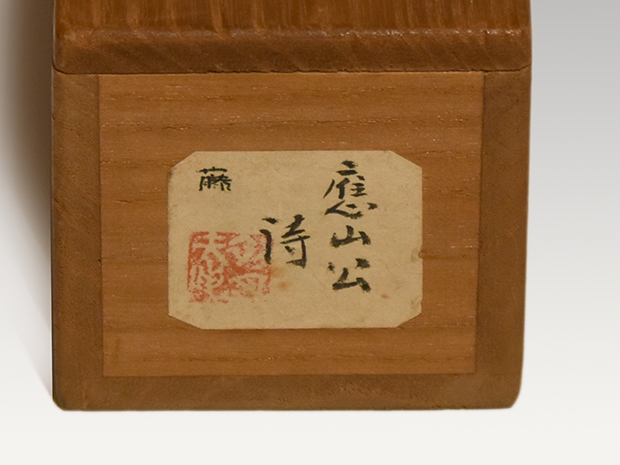 應山公
詩
藤